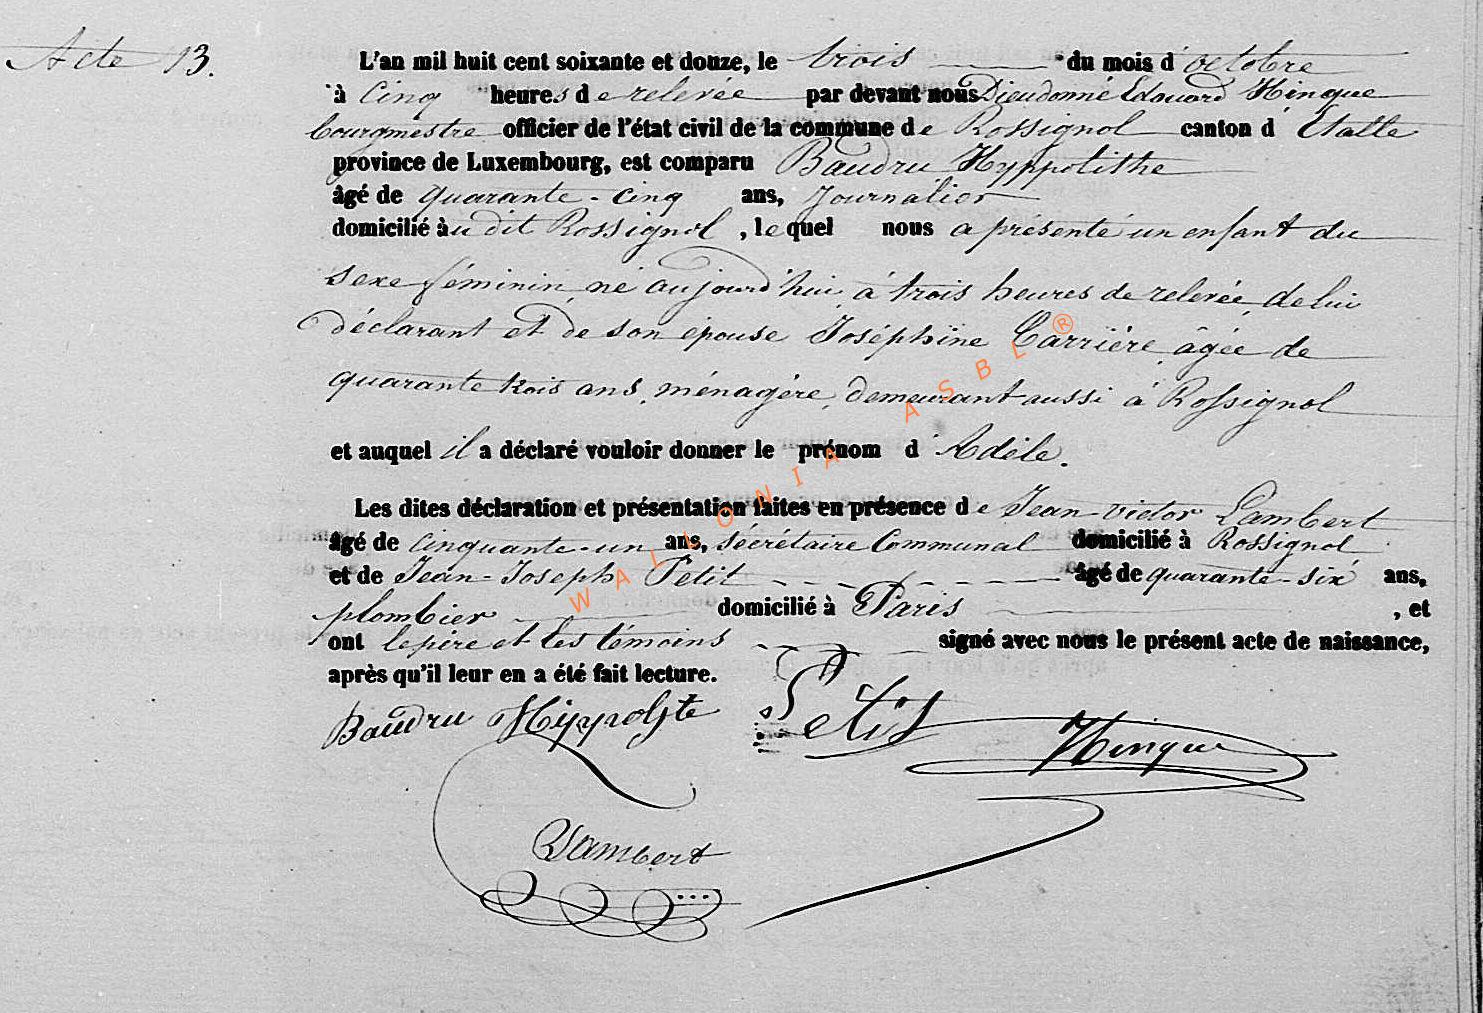 Acte 13.
L'an mil huit cent soixante et douze, le trois du mois d'octobre
à cinq heures de relevée par devant nous Dieudonné Edouard Hinque
bourgmestre officier de l'état civil de la commune de Rossignol canton d'Etalle
province de Luxembourg, est comparu Baudru Hyppolithe
âgé de quarante-cinq ans, journalier
domicilié audit Rossignol, lequel nous a présenté un enfant du
sexe féminin, né aujourd'hui, à trois heures de relevée, de lui
déclarant et de son épouse Joséphine Carrière, âgée de
quarante trois ans, ménagère, demeurant aussi à Rossignol
et auquel il a déclaré vouloir donner le prénom d'Adèle.
Les dites déclaration et présentation faites en présence de Jean-victor Lambert
âgé de cinquante-un ans, sécrétaire Communal domicilié à Rossignol
et de Jean-Joseph Petit âgé de quarante-six ans,
plombier domicilié à Paris, et
ont le père et les témoins signé avec nous le présent acte de naissance,
après qu'il leur en a été fait lecture.
Baudru Hippolyte Petit Hinque
Lambert
WALLONIA ASBL ®